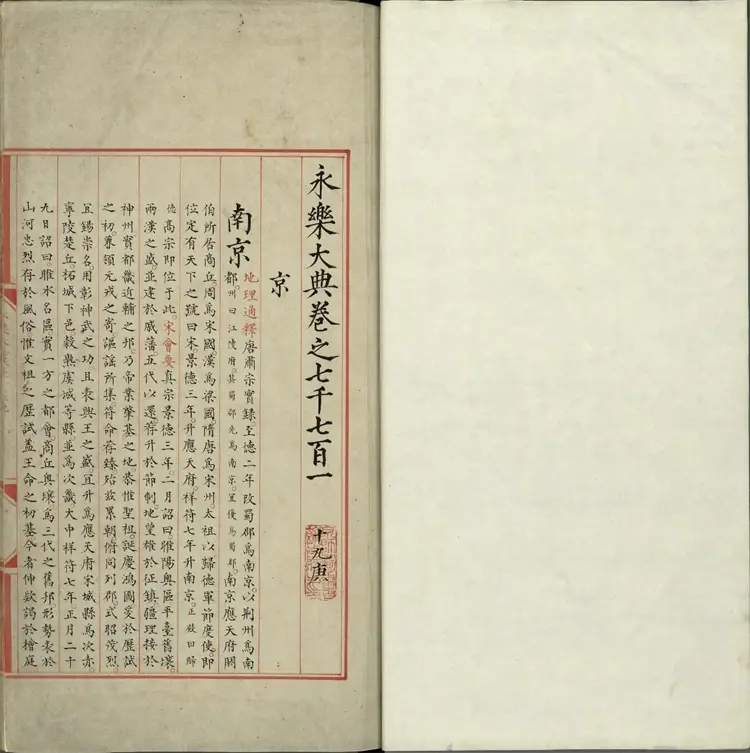 永樂大典卷之七千七百一 十九庚
京
南京 地理通釋唐肅宗實錄至德二年改蜀郡為南京以荆州為南
都州曰江陵府其蜀郡先為南京宜復為蜀郡南京應天府閼
伯所居商丘周為宋國漢為梁國隋唐為宋州太祖以歸德軍節度使即
位定有天下之號曰宋景德三年升應天府祥符七年升南京正殿曰歸
德高宗即位于此宋會要真宗景德三年二月詔曰睢陽奧區平臺舊壤
兩漢之盛並建於戚藩五代以還荐升於節制地望雄於征鎮疆理接於
神州實都畿近輔之邦乃帝業肇基之地恭惟聖祖誕慶鴻圖爰於歷試
之初兼領元戎之寄謳謠所集符命荐臻殆茲累朝俯同列郡式昭茂烈
宜錫崇名用彰神武之功且表興王之盛宜升為應天府宋城縣為次赤
寧陵楚丘柘城下邑穀熟虞城等縣並為次畿大中祥符七年正月二十
九日詔曰睢水名區實一方之都會商丘奧壤為三代之舊邦形勢表於
山河忠烈存於風俗惟文祖之歷試蓋王命之初基今者伸款謁於檜庭